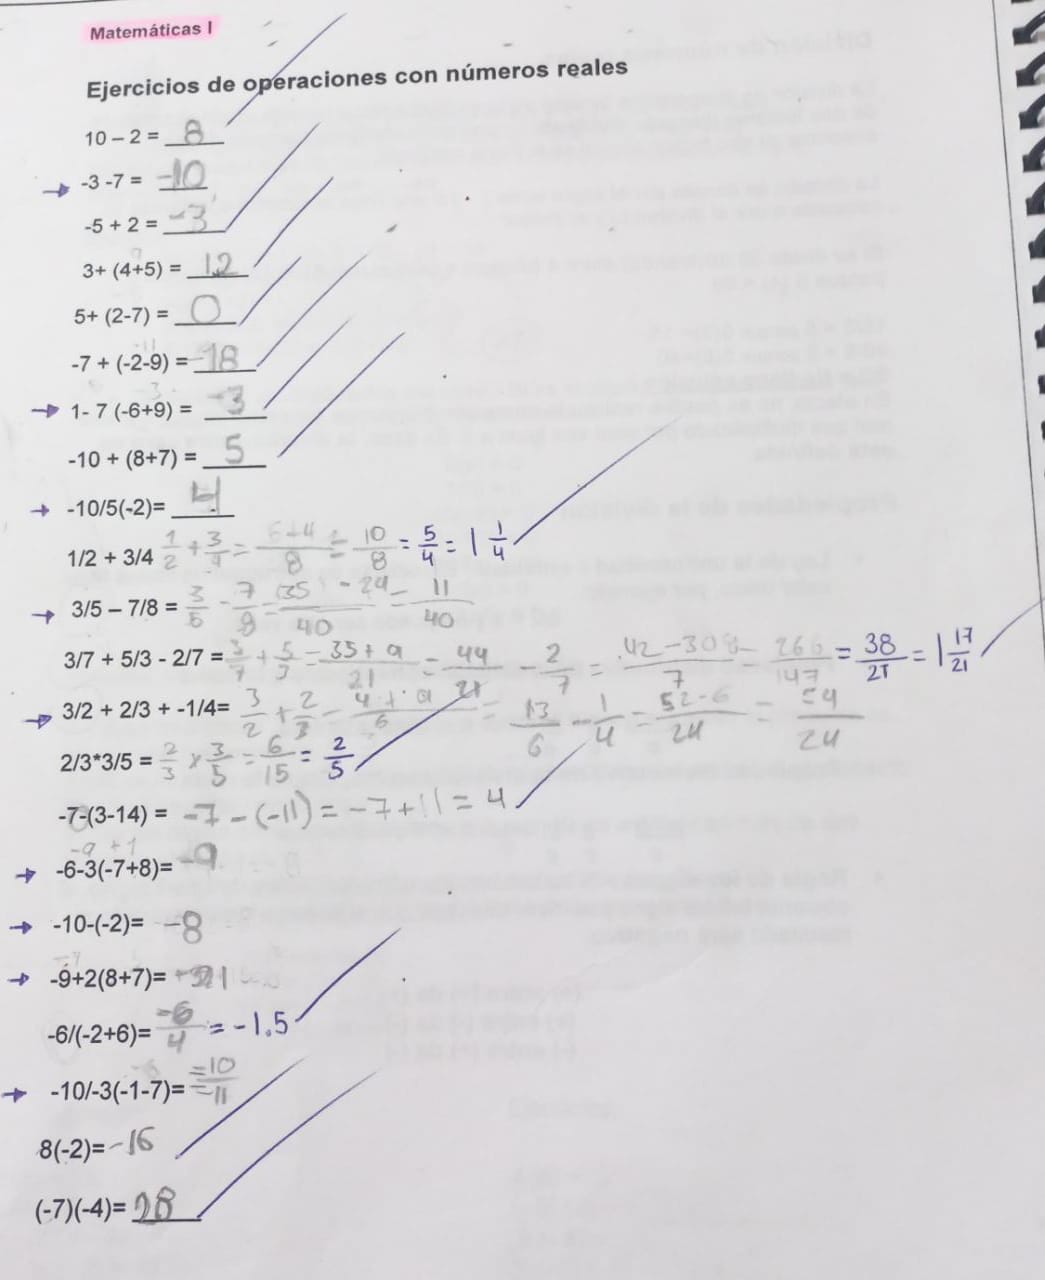 Matemáticas I
Ejercicios de operaciones con números reales
10 – 2 = 8
-3 -7 = -10
-5 + 2 = -3
9
3+ (4+5) = 12
5+ (2-7) = 0
-11
-7 + (-2-9) = -18
-3
1- 7 (-6+9) = -3
-10 + (8+7) = 5
-10/5(-2)= 4
1/2 + 3/4 1/2 + 3/4 = 6+4/8 = 10/8 = 5/4 = 1 1/4
3/5 – 7/8 = 3/5 - 7/8 = 35 - 24/40 = 11/40
3/7 + 5/3 - 2/7 = 3/7 + 5/3 = 35+9/21 = 44/21 - 2/7 = 42-308/7 266/147 = 38/21 = 1 17/21
3/2 + 2/3 + -1/4= 3/2 + 2/3 = 4+9/6 = 13/6 - 1/4 = 52-6/24 = 54/24
2/3*3/5 = 2/3 x 3/5 = 6/15 = 2/5
-7-(3-14) = -7 - (-11) = -7+11 = 4
-9 +1
-6-3(-7+8)= -9
-10-(-2)= -8
-9+2(8+7)= 21
-6/(-2+6)= -6/4 = -1.5
-10/-3(-1-7)= -10/-11
8(-2)= -16
(-7)(-4)= 28